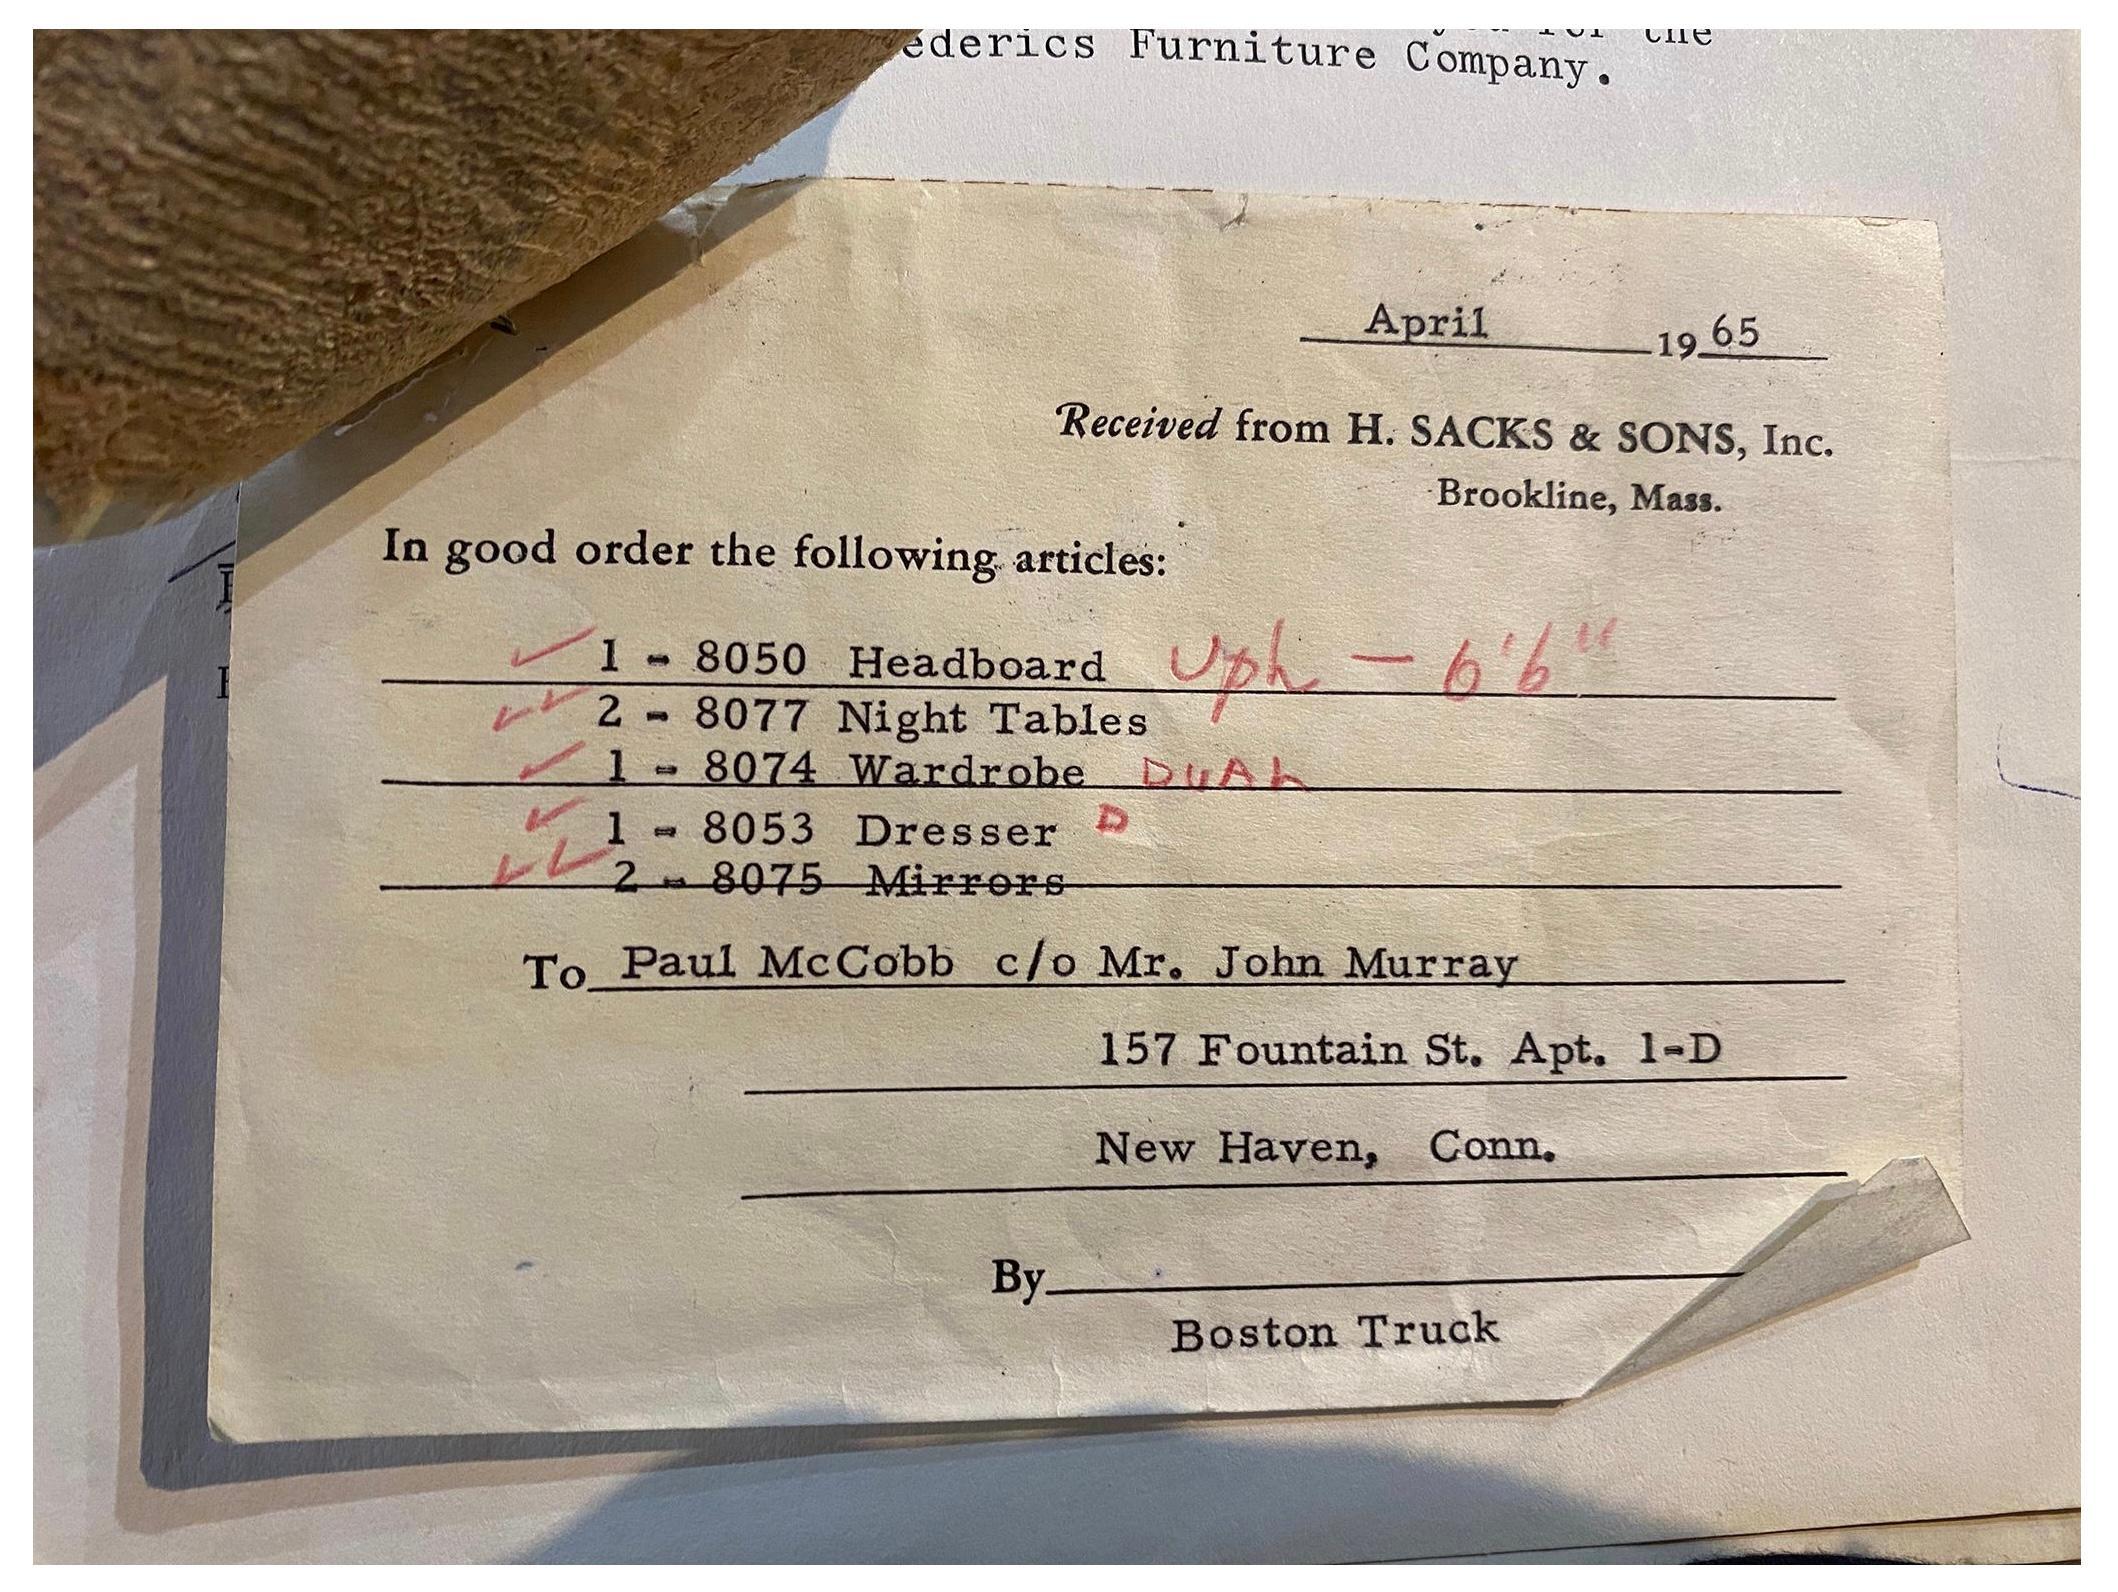 for the
ederics Furniture Company.
April 19 65
Received from H. SACKS & SONS, Inc.
Brookline, Mass.
In good order the following articles:
1 - 8050 Headboard Uph — 6'6"
2 - 8077 Night Tables
1 - 8074 Wardrobe DUAL
1 - 8053 Dresser D
2 - 8075 Mirrors
To Paul McCobb c/o Mr. John Murray
157 Fountain St. Apt. 1-D
New Haven, Conn.
By
Boston Truck